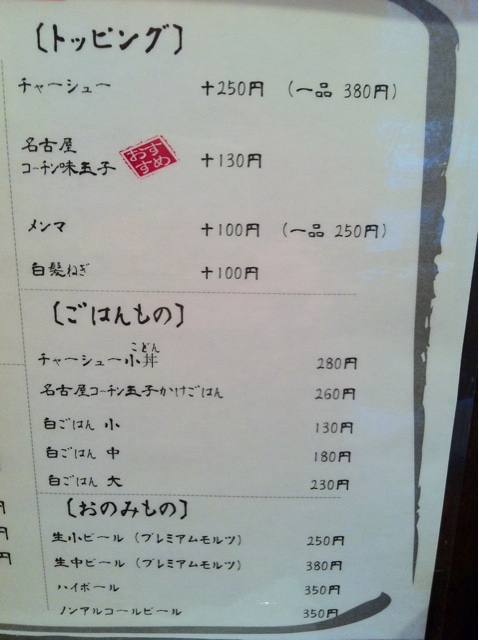 〔トッピング〕
チャーシュー +250円 (一品 380円)
名古屋
コーチン味玉子 おすすめ +130円
メンマ +100円 (一品 250円)
白髪ねぎ +100円
〔ごはんもの〕
こどん
チャーシュー小丼 280円
名古屋コーチン玉子かけごはん 260円
白ごはん 小 130円
白ごはん 中 180円
白ごはん 大 230円
〔おのみもの〕
生小ビール (プレミアムモルツ) 250円
生中ビール (プレミアムモルツ) 380円
ハイボール 350円
ノンアルコールビール 350円